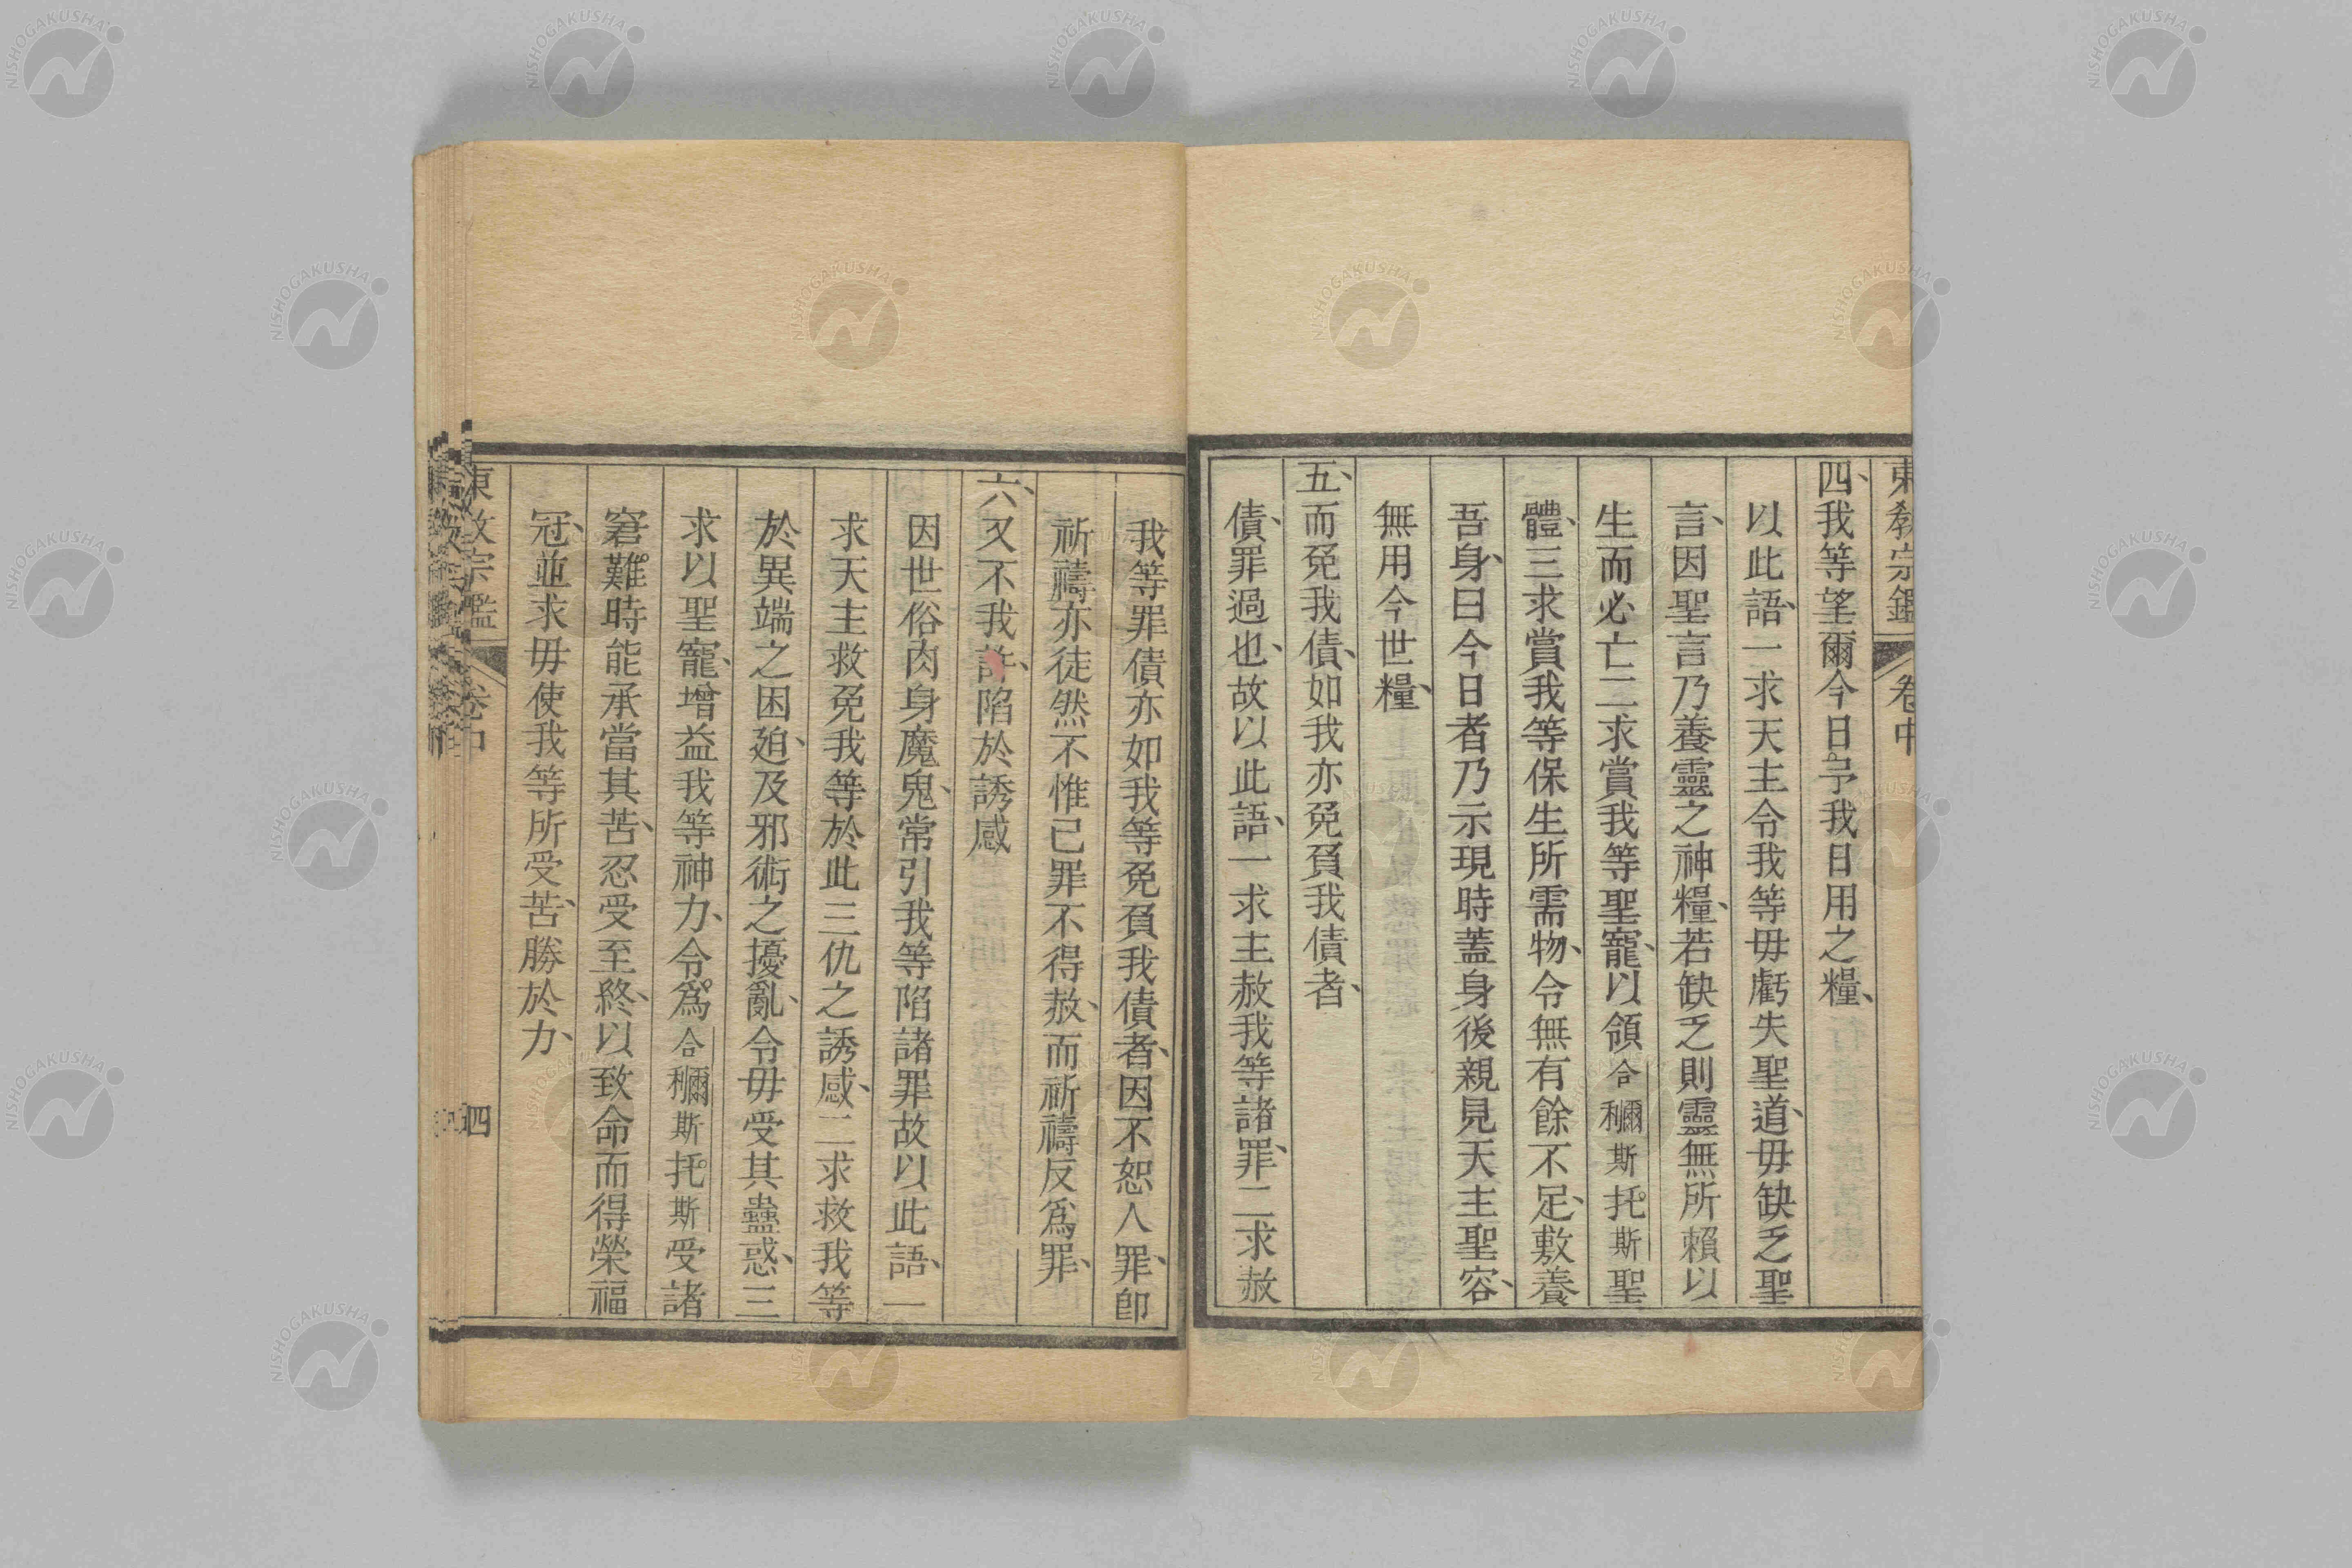 東教宗鑑 卷中
四、我等望爾今日予我日用之糧、
以此語、一求天主令我等毋虧失聖道、毋缺乏聖
言、因聖言乃養靈之神糧、若缺乏則靈無所賴以
生而必亡二求賞我等聖寵、以領合利爾斯托斯聖
體、三求賞我等保生所需物、令無有餘不足、敷養
吾身、曰今日者乃示現時蓋身後親見天主聖容、
無用今世糧、
五、而免我債、如我亦免負我債者、
債、罪過也、故以此語、一求主赦我等諸罪、二求赦
我等罪債亦如我等免負我債者、因不恕人罪、卽
祈禱亦徒然不惟己罪不得赦、而祈禱反爲罪、
六、又不我許、陷於誘感
因世俗肉身魔鬼、常引我等陷諸罪故以此語、一
求天主救免我等於此三仇之誘感、二求救我等
於異端之困廹、及邪術之擾亂、令毋受其蠱惑、三
求以聖寵、增益我等神力、令爲合利爾斯托斯受諸
窘難時能承當其苦、忍受至終、以致命而得榮福
冠、並求毋使我等所受苦、勝於力、
東教宗鑑 卷中 四
NISHOGAKUSHA